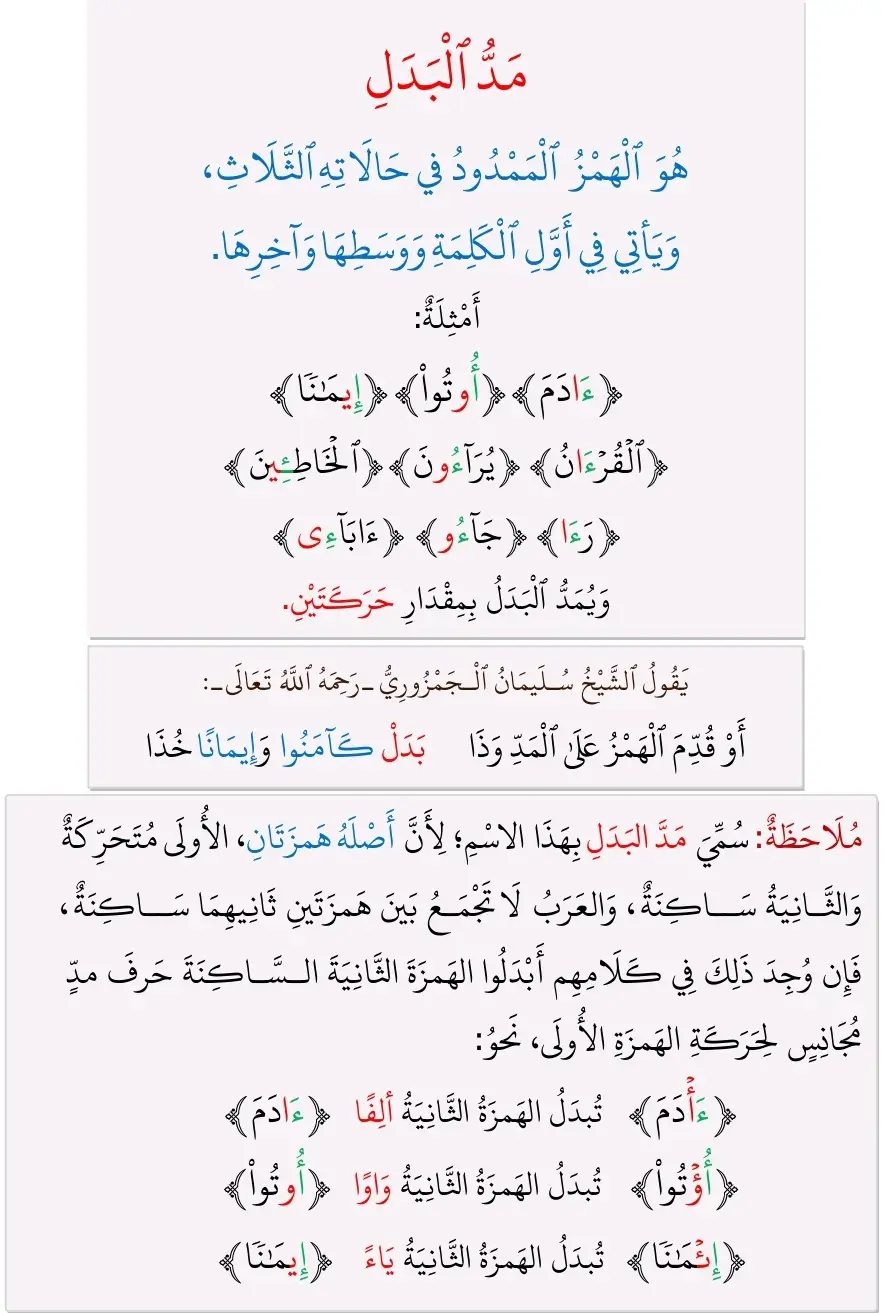 مَدُّ ٱلْبَدَلِ
هُوَ ٱلْهَمْزُ ٱلْمَمْدُودُ فِي حَالَاتِهِ ٱلثَّلَاثِ،
وَيَأْتِي فِي أَوَّلِ ٱلْكَلِمَةِ وَوَسَطِهَا وَآخِرِهَا.
أَمْثِلَةٌ:
﴿ءَادَمَ﴾ ﴿أُوتُواْ﴾ ﴿إِيمَٰنَۢا﴾
﴿ٱلْقُرْءَانُ﴾ ﴿يُرَآءُونَ﴾ ﴿ٱلْخَاطِئِينَ﴾
﴿رَءَا﴾ ﴿جَآءُو﴾ ﴿ءَابَآءِى﴾
وَيُمَدُّ ٱلْبَدَلُ بِمِقْدَارِ حَرَكَتَيْنِ.
يَقُولُ ٱلشَّيْخُ سُلَيمَانُ ٱلْجَمْزُورِيُّ -رَحِمَهُ ٱللَّهُ تَعَالَى-:
أَوْ قُدِّمَ ٱلْهَمْزُ عَلَىٰ ٱلْمَدِّ وَذَا بَدَلْ كَآمَنُوا وَإِيمَانًا خُذَا
مُلَاحَظَةٌ: سُمِّيَ مَدَّ البَدَلِ بِهَذَا الاسْمِ؛ لِأَنَّ أَصْلَهُ هَمزَتَانِ، الأُولَى مُتَحَرِّكَةٌ
وَالثَّانِيَةُ سَاكِنَةٌ، وَالعَرَبُ لَا تَجْمَعُ بَينَ هَمزَتَينِ ثَانِيهِمَا سَاكِنَةٌ،
فَإِن وُجِدَ ذَلِكَ فِي كَلَامِهِم أَبْدَلُوا الهَمزَةَ الثَّانِيَةَ السَّاكِنَةَ حَرفَ مدٍّ
مُجَانِسٍ لِحَرَكَةِ الهَمزَةِ الأُولَى، نَحوُ:
﴿ءَأْدَمَ﴾ تُبدَلُ الهَمزَةُ الثَّانِيَةُ ألِفًا ﴿ءَادَمَ﴾
﴿أُؤْتُواْ﴾ تُبدَلُ الهَمزَةُ الثَّانِيَةُ وَاوًا ﴿أُوتُواْ﴾
﴿إِئْمَٰنَۢا﴾ تُبدَلُ الهَمزَةُ الثَّانِيَةُ يَاءً ﴿إِيمَٰنَۢا﴾